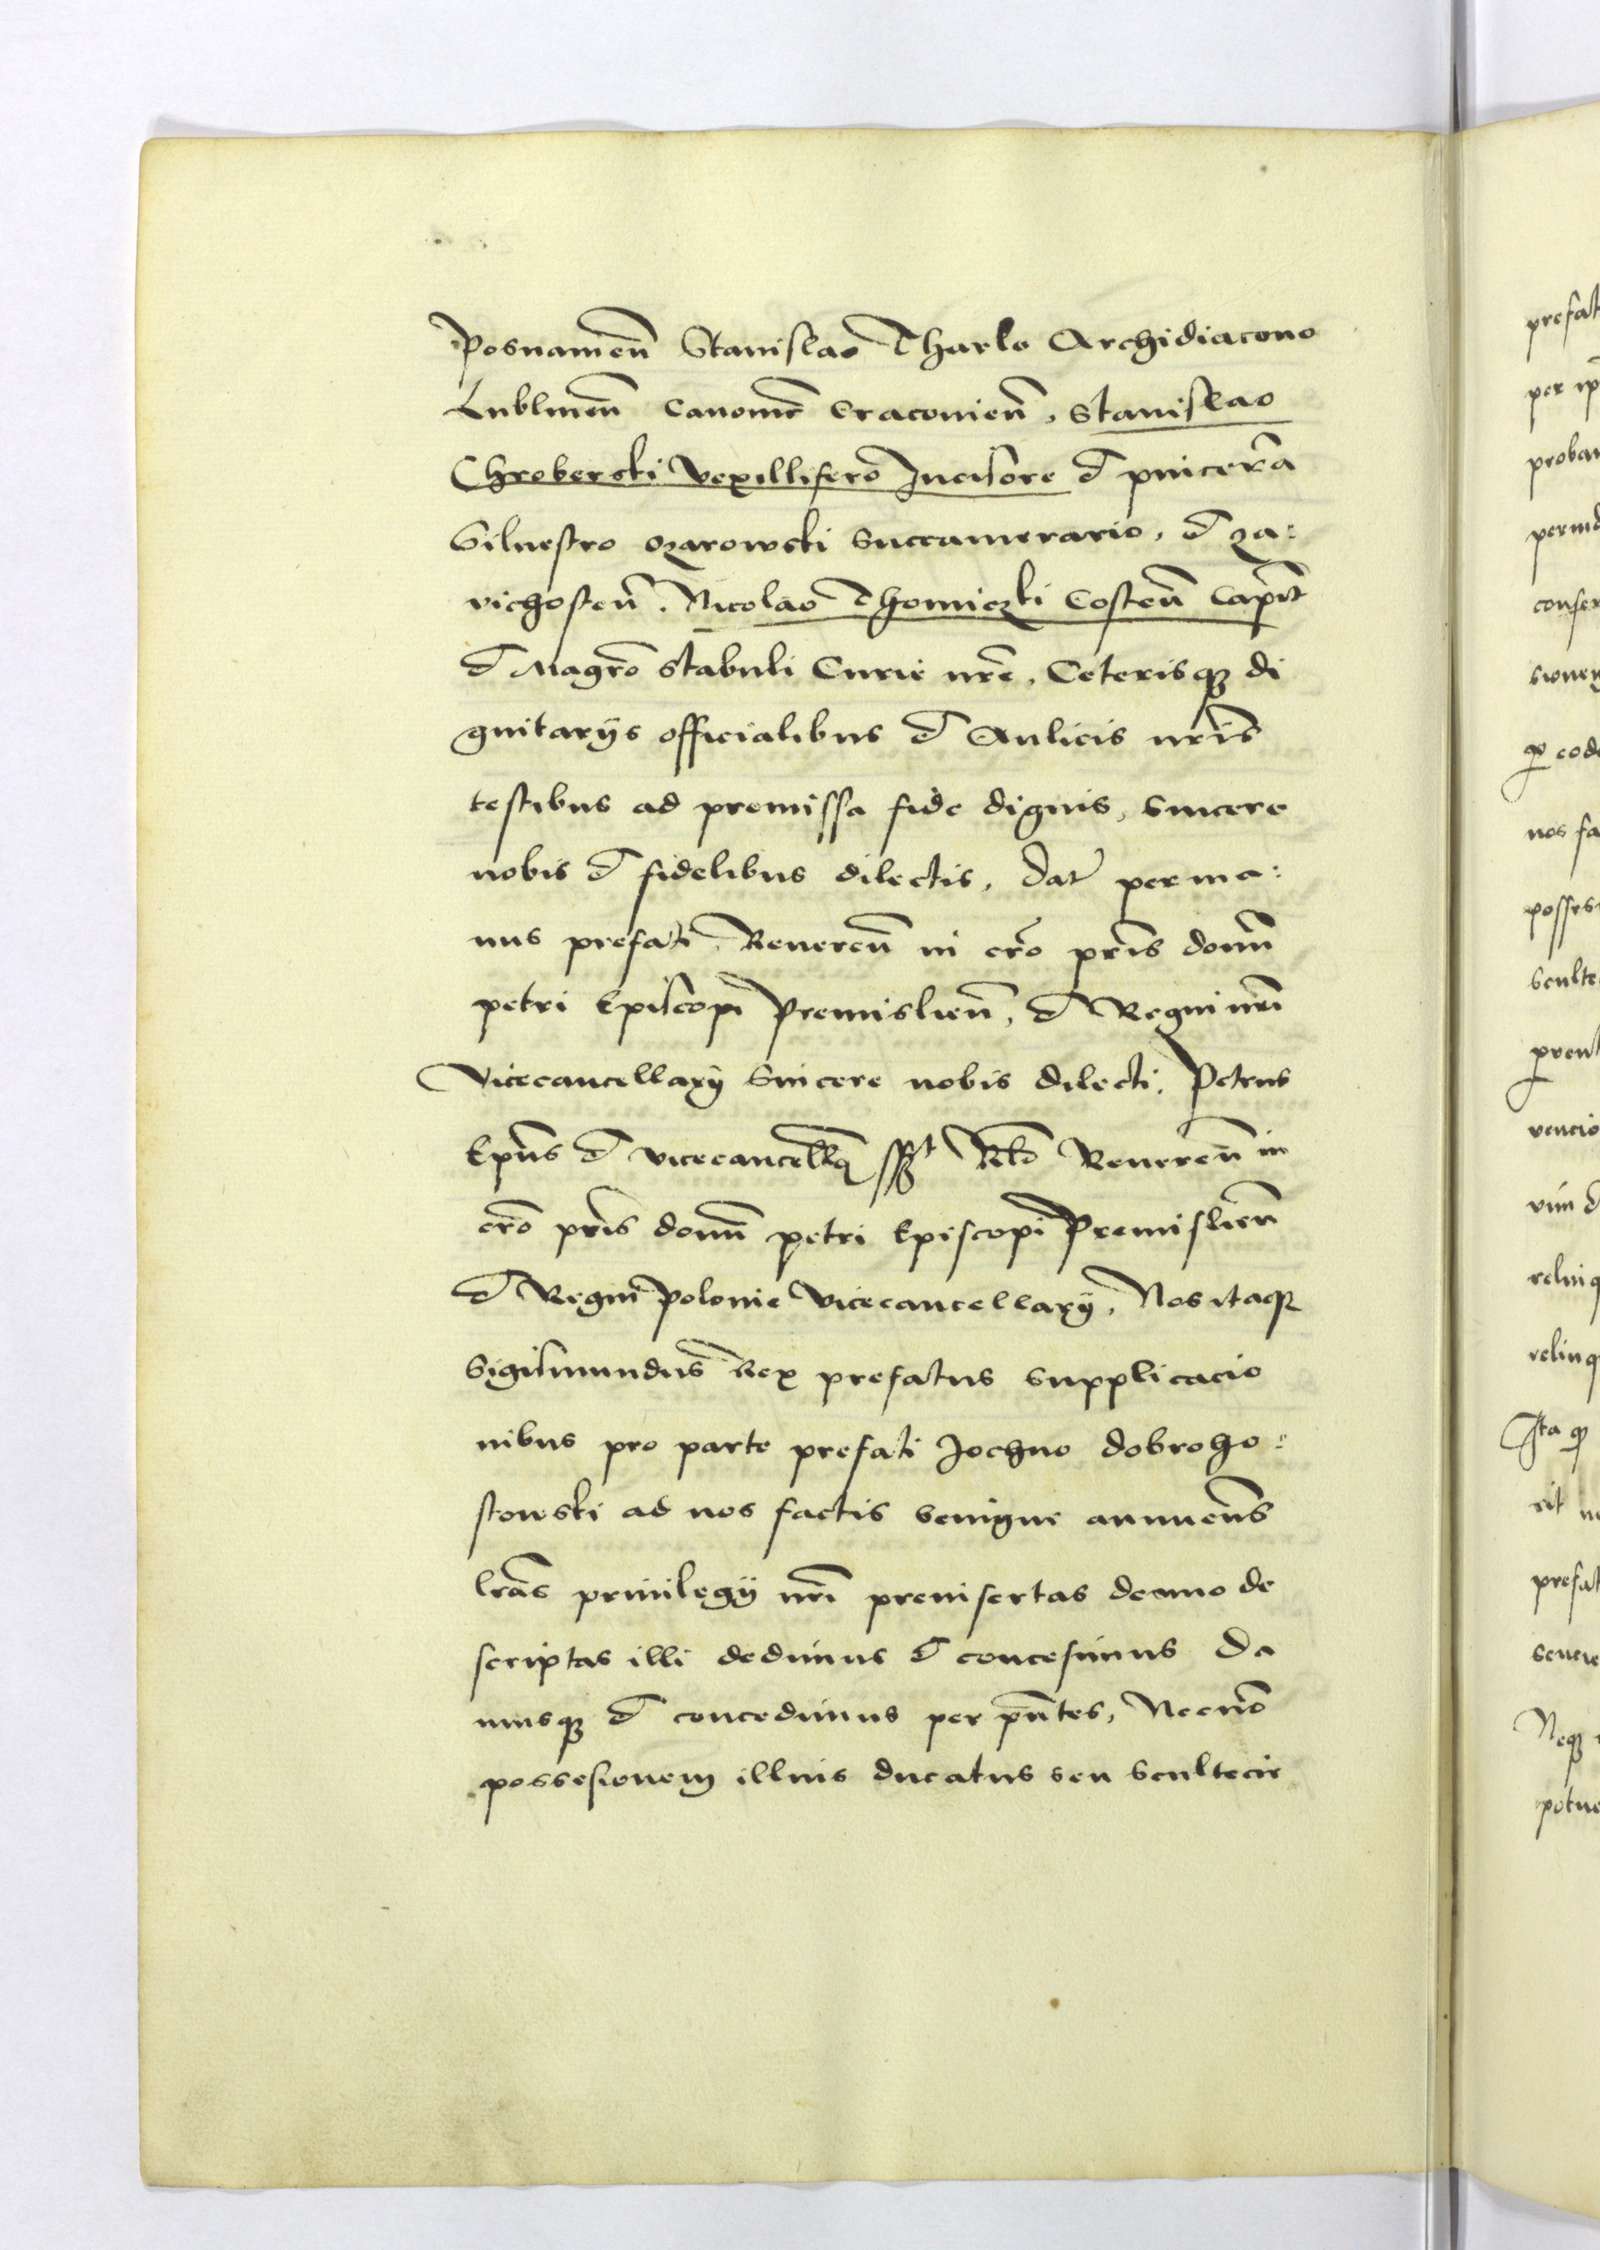 Posnanien̄ Stanislao Tharlo Archidiacono
Lublinen̄ Canonic̄ Cracouien̄, Stanislao
Chroberski Vexillifero Incisore & pincerna
Siluestro ozarowski Succamerario, & za:
vichosten̄. Nicolao Thomiczki Costen̄ Capit̄
& Magr̄o stabuli Curie nr̄e, Ceterisq3 di
gnitarijs officialibus & Aulicis nr̄is
testibus ad premissa fide dignis, sincere
nobis & fidelibus dilectis, dat̄ per ma:
nus prefati Reueren̄ in cr̄o pr̄is domn̄
petri Episcopi Premislien̄, & Regni nr̄i
Vicecancellarij sincere nobis dilecti. Petrus
Ep̄us & vicecancell̄q sszt Rl̄o Reueren̄ in
cr̄o pr̄is domn̄ petri Episcopi Premislien̄
& Regni polonie Vicecancellarij, Nos itaq3
Sigismundus Rex prefatus supplicacio
nibus pro parte prefati Jochno dobroho:
stowski ad nos factis benigne annuen̄s
lr̄as priuilegij nr̄i preinsertas denuo de
scriptas illi dedimus & concesimus Da
musq3 & concedimus per pn̄tes, Necn̄o
possesionem illius ducatus seu scultecie
prefat
per ip
probar
confer
nos fa
posses
sculte
vencio
relinq
relinq
Ita q3
prefat
Neq3
potue